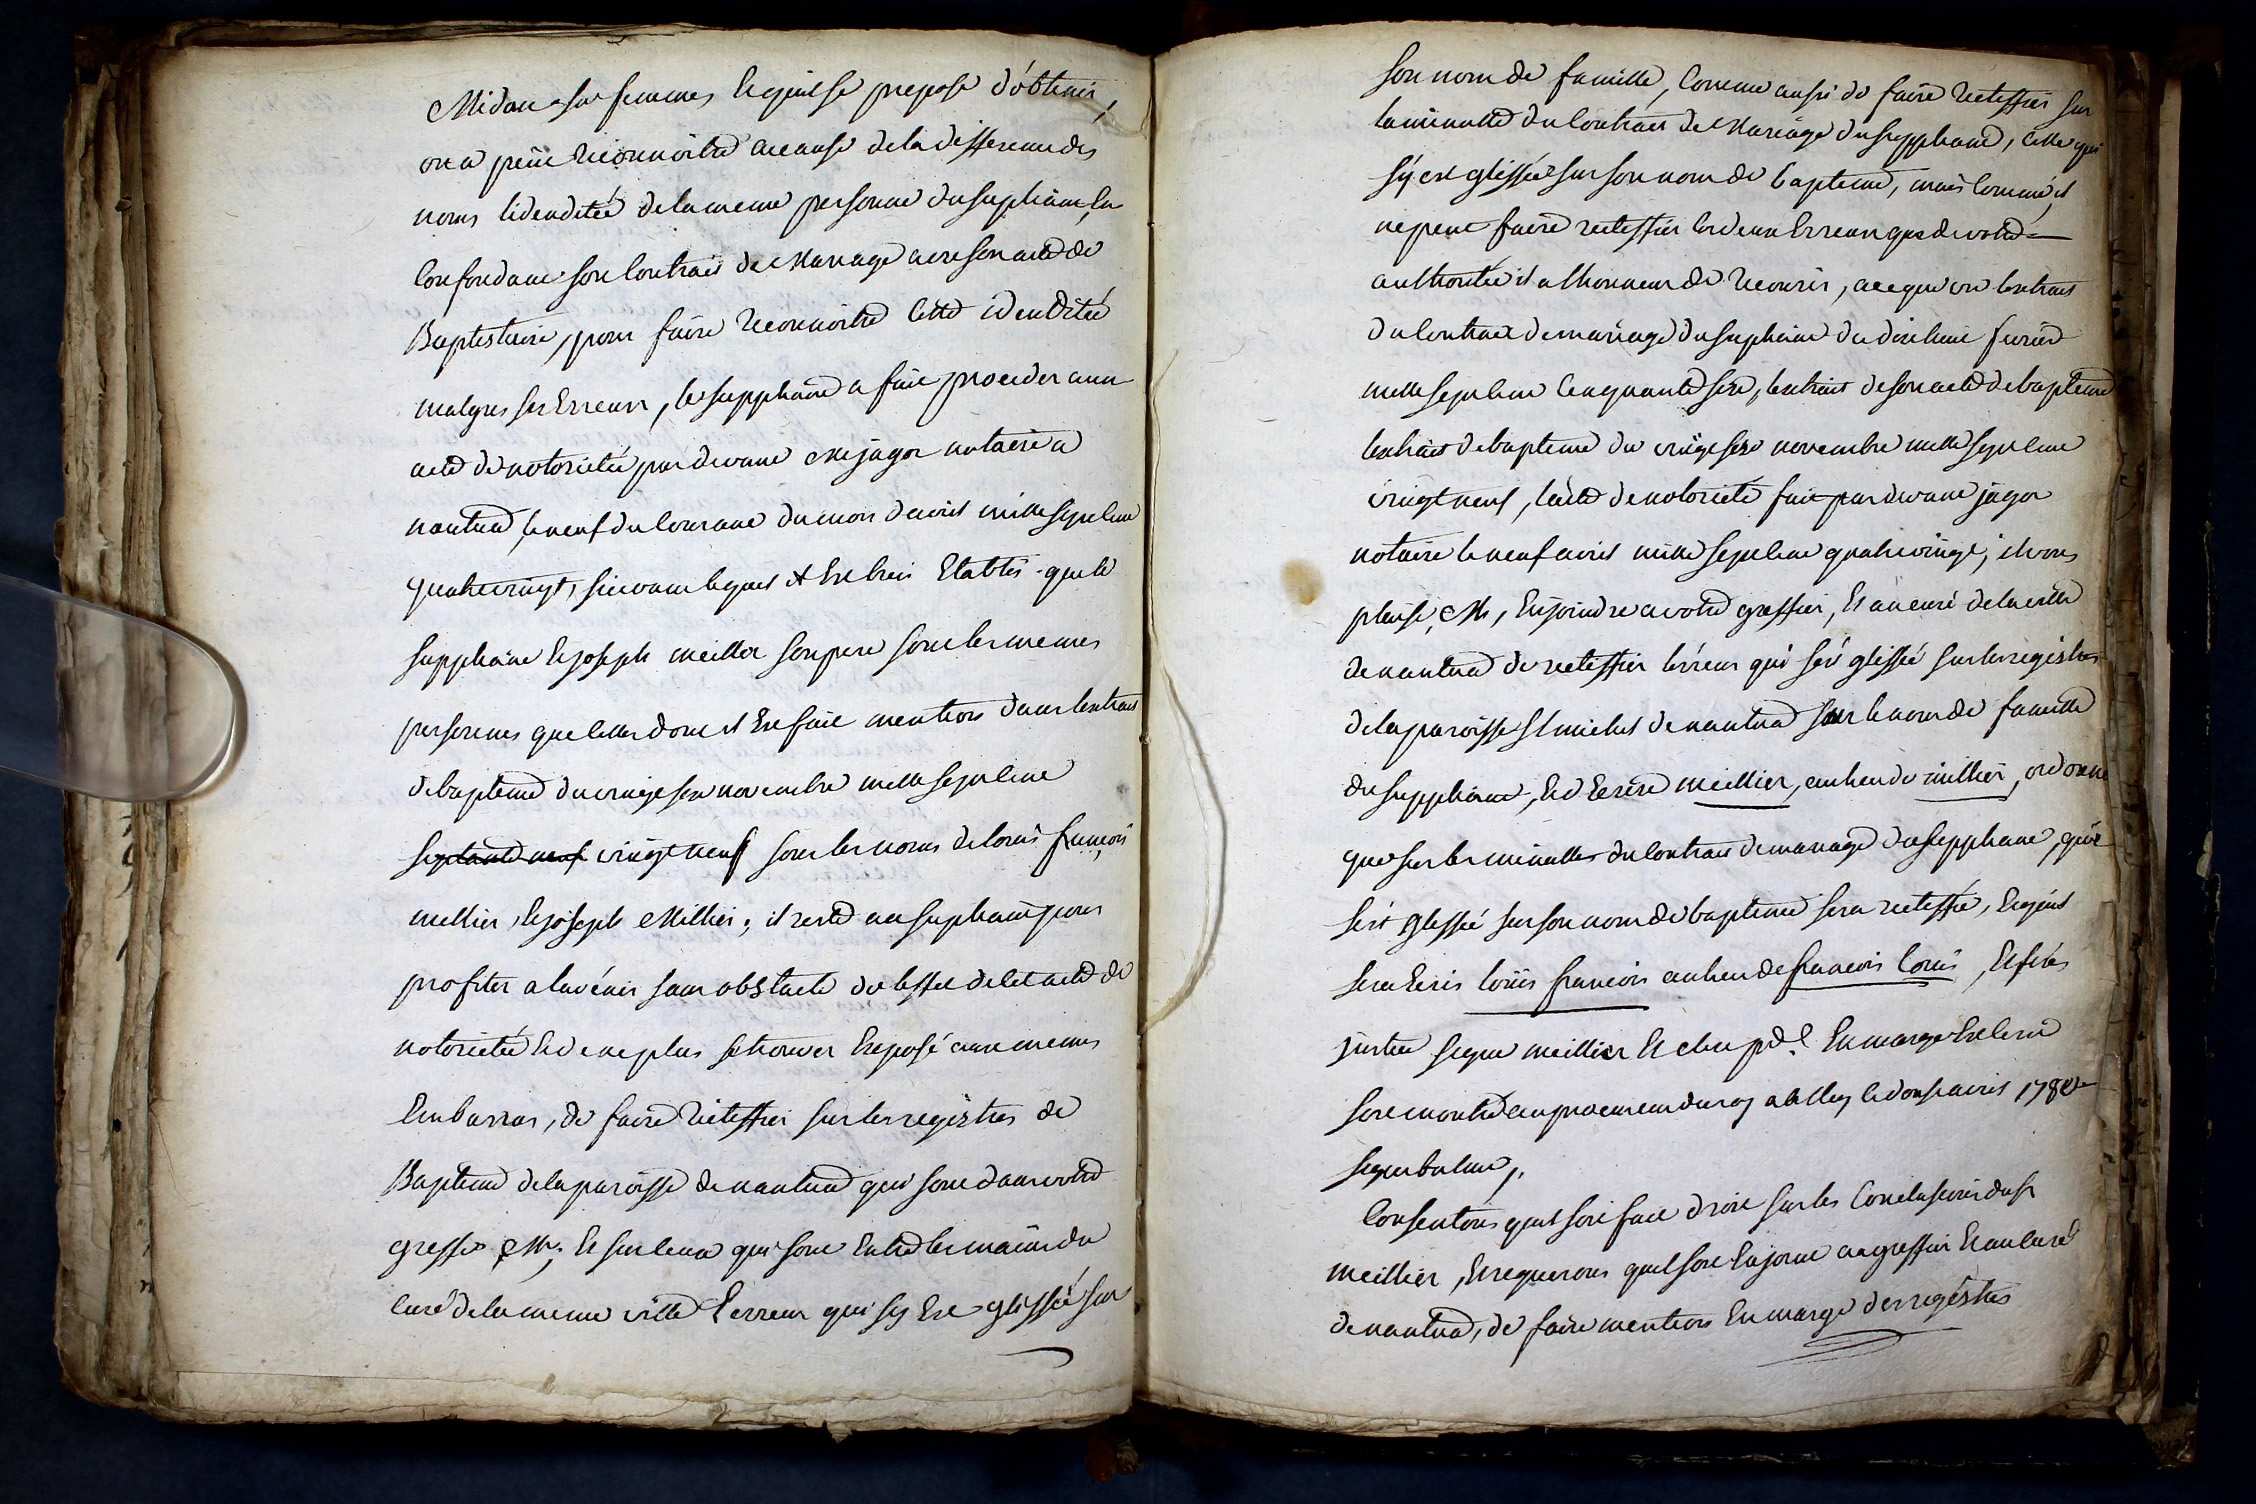 Midan sa femme, et quil se propose d'obtenir,
on a peine reconnoitre acause de la differeance des
noms lidenditée de la meme personne du supliant, en
confondant son contrait de Mariage avec son acte de
Baptistaire, pour faire reconnoitre cette idendité
malgres ses Erreurs, le suppliant a fait proceder a un
acte de notorietée par devant Me jagot notaire a
nantua, le neuf du courant du mois d'avril mille sept cent
quatre vingt, suivant lequel il Est bien Etabli que le
suppliant et joseph meillier son pere sont les memes
personnes que celles dont il Est fait mention dans lextrait
de bapteme du vingt six novembre mille sept cent
septante neuf vingt neuf sous les noms de louis françois
millier, et joseph Millier; il reste au supliant pour
profiter a lavénir sans obstacle de leffet de cet acte de
notorietée et de ne plus se trouver Exposé aux memes
Embarras, de faire rectiffier sur les registres de
Bapteme de la paroisse de nantua qui sont dans votre
greffe Mr; Et sur ceux qui sont Entre les mains du
curé de la meme ville l'erreur qui sy Est glissée sur
son nom de famille, comme aussi de faire rectiffier sur
la minutte du contrait de Mariage du suppliant, celle qui
s'y est glissée sur son nom de bapteme, mais comme il
ne peut faire rectiffier ces deux Erreurs que de votre
authoritée il a lhonneur de recourir, a ce que vu lextrait
du contrait de mariage du supliant du dix huit fevrier
mille sept cent cinquante six, lextrait de son acte de bapteme
lextrait de bapteme du vingt six novembre mille sept cent
vingt neuf, lacte de notorieté fait par devant jagot
notaire le neuf avril mille sept cent quatre vingt; il vous
plaise, Mr, Enjoindre a votre greffier, Et au curé de la ville
de nantua de rectiffier lérreur qui sest glissée sur les registres
de la paroisse st michel de nantua sur le nom de famille
du suppliant, Et d'Ecrire meillier, au lieu de millier, ordonner
que sur les minuttes du contrait de mariage du suppliant, qui
sest glissée sur son nom de bapteme sera rectiffié, Et quil
sera Ecris loüis francois au lieu de francois loüis, Et ferés
justice signé meillier Et pr En marge Est Ecrit
soit montré au procureur du roy a le douse avril 1780
signé
Consentons quil soit fait droit sur les conclusions dudit
meillier, Et requerons quil soit Enjoint au greffier Et au curé
de nantua, de faire mention En marge des registres